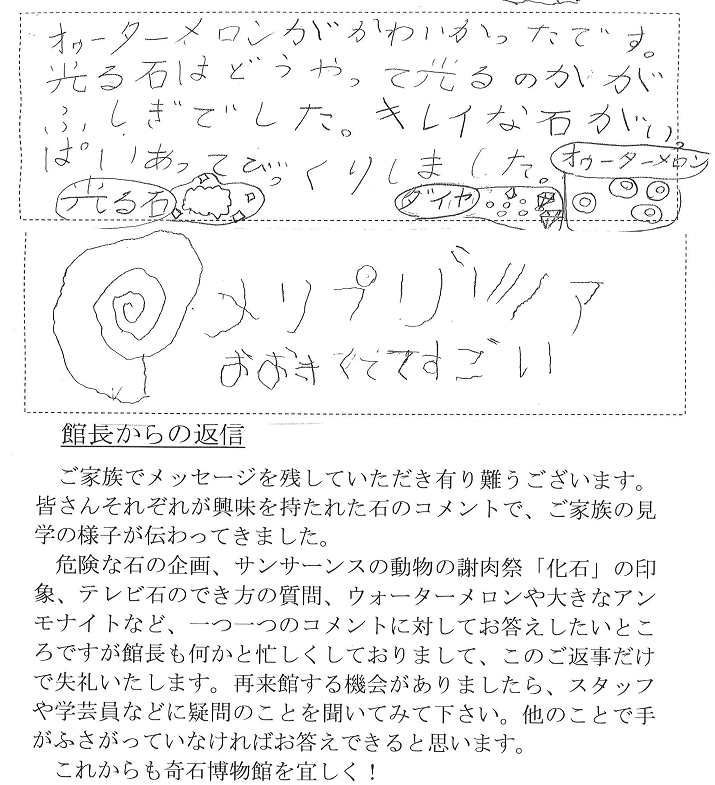 オウーターメロンがかわいかったです。
光る石はどうやって光るのかが
ふしぎでした。キレイな石がい。
ぱいあってびっくりしました。
オウーターメロン
光る石
ダイヤ
おおきくてすごい
館長からの返信
ご家族でメッセージを残していただき有り難うございます。
皆さんそれぞれが興味を持たれた石のコメントで、ご家族の見
学の様子が伝わってきました。
危険な石の企画、サンサーンスの動物の謝肉祭「化石」の印
象、テレビ石のでき方の質問、ウォーターメロンや大きなアン
モナイトなど、一つ一つのコメントに対してお答えしたいとこ
ろですが館長も何かと忙しくしておりまして、このご返事だけ
で失礼いたします。再来館する機会がありましたら、スタッフ
や学芸員などに疑問のことを聞いてみて下さい。他のことで手
がふさがっていなければお答えできると思います。
これからも奇石博物館を宜しく！